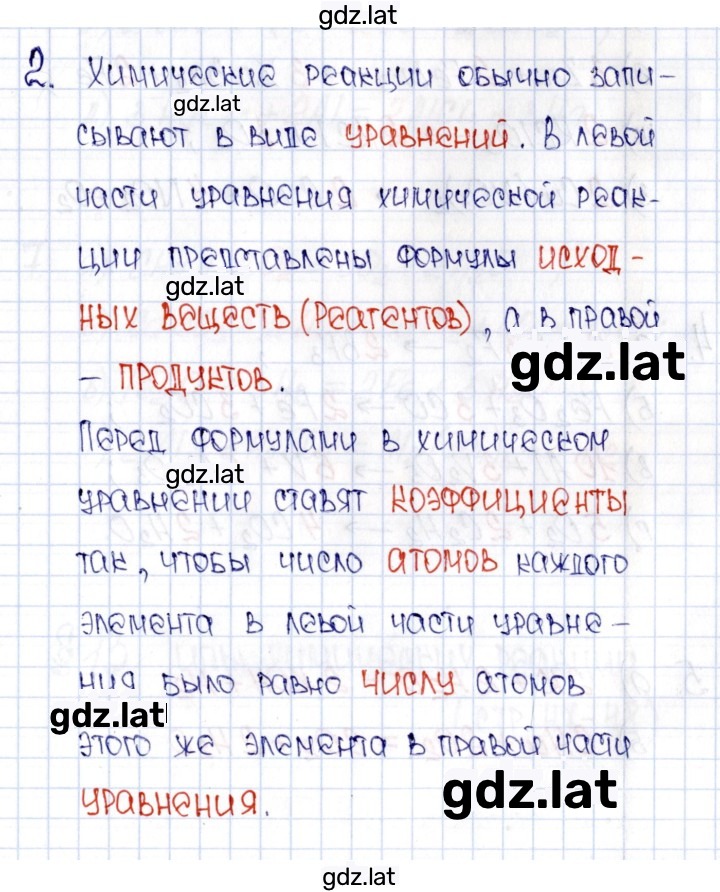 gdz.lat
2. Химические реакции обычно запи-
gdz.lat
сывают в виде уравнений. В левой
части уравнения химической реак-
ции представлены формулы исход-
gdz.lat
ных веществ (реагентов), а в правой
gdz.lat
– продуктов.
Перед формулами в химическом
gdz.lat
уравнении ставят коэффициенты
так, чтобы число атомов каждого
элемента в левой части уравне-
ния было равно числу атомов
gdz.lat
этого же элемента в правой части
gdz.lat
уравнения.
gdz.lat